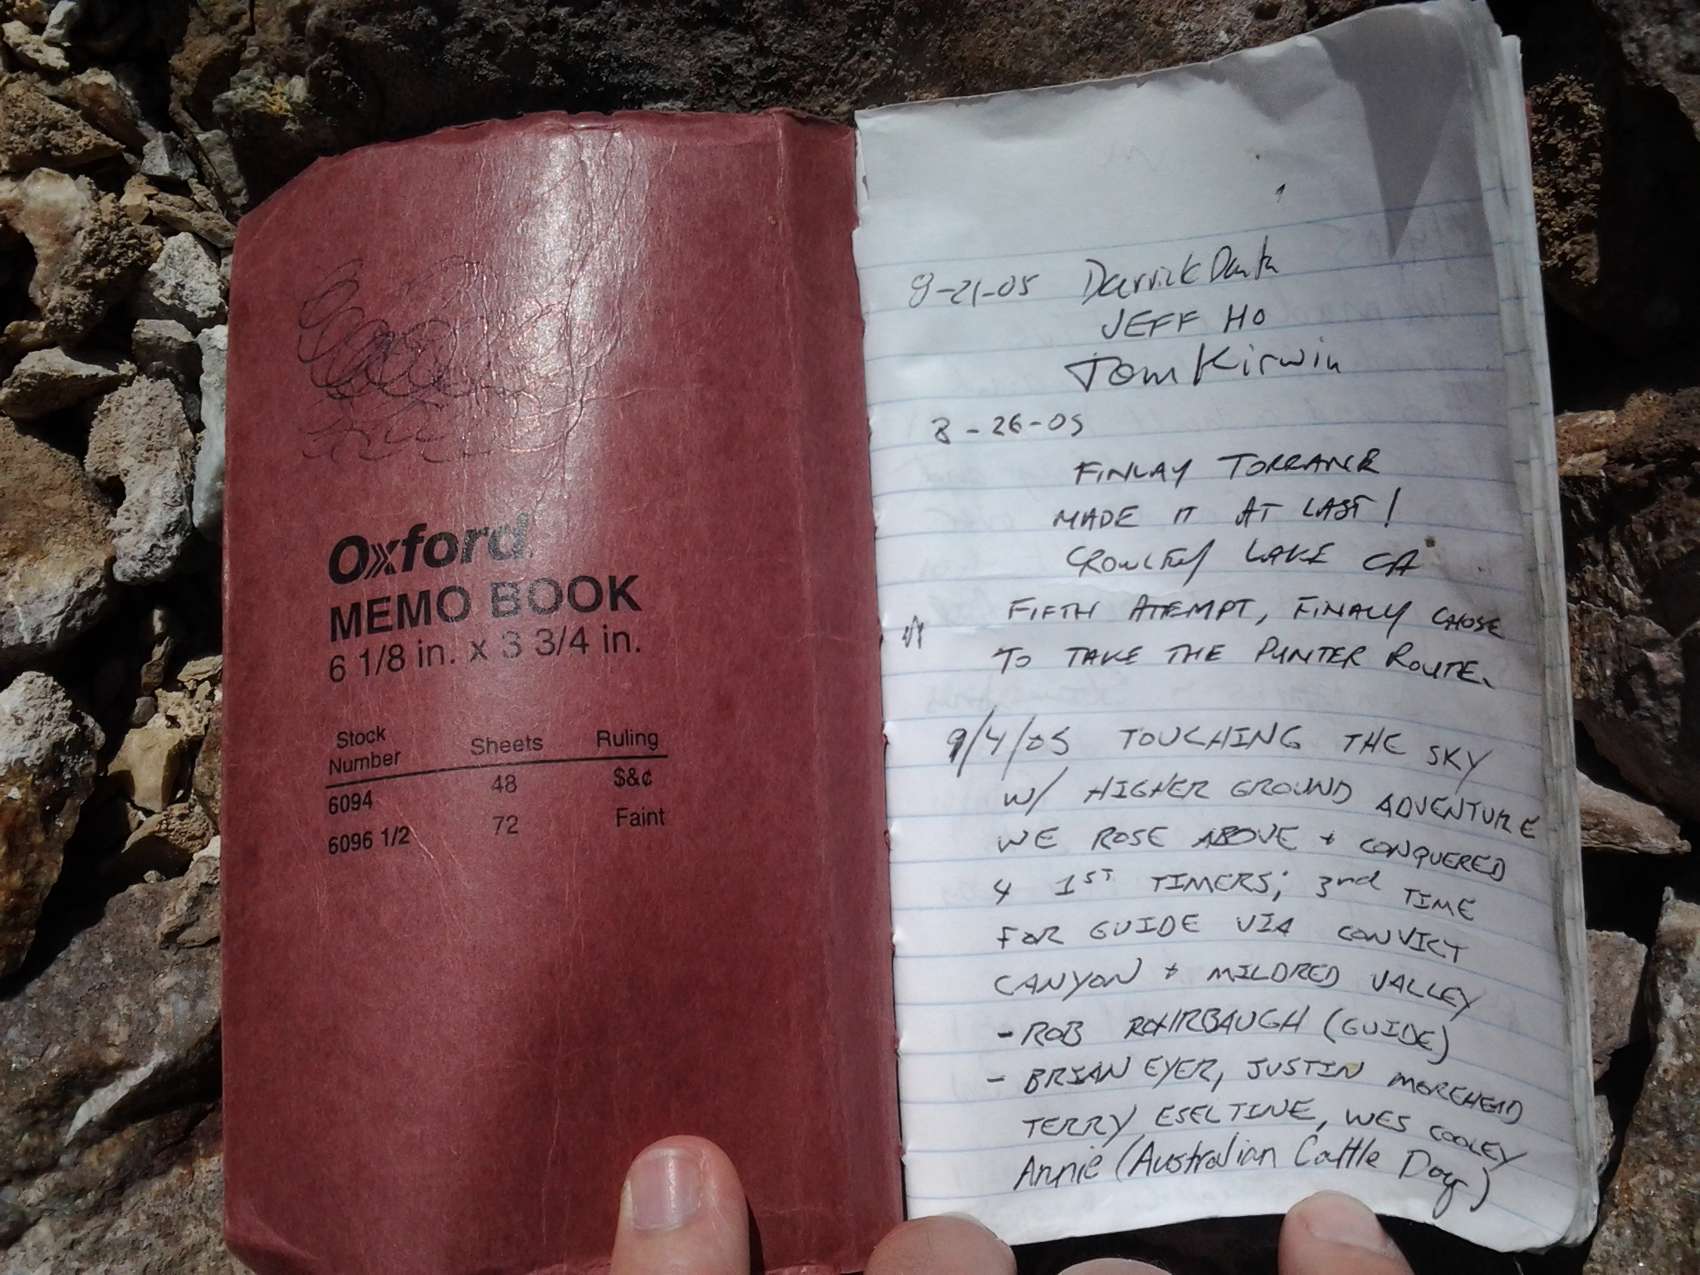 Oxford
MEMO BOOK
6 1/8 in. x 3 3/4 in.
Stock Number Sheets Ruling
6094 48 $&¢
6096 1/2 72 Faint
8-21-05 Derrick
JEFF HO
Tom Kirwin
8-26-05
FINLAY TORRANCE
MADE IT AT LAST!
CROWLEY LAKE CA
FIFTH ATEMPT, FINALY CHOSE
TO TAKE THE PUNTER ROUTE.
9/4/05 TOUCHING THE SKY
W/ HIGHER GROUND ADVENTURE
WE ROSE ABOVE + CONQUERED
4 1ST TIMERS; 3rd TIME
FOR GUIDE VIA CONVICT
CANYON + MILDRED VALLEY
- ROB ROHRBAUGH (GUIDE)
- BRIAN EYER, JUSTIN MOREHEAD
TERRY ESELTINE, WES COOLEY
Annie (Australian Cattle Dog)